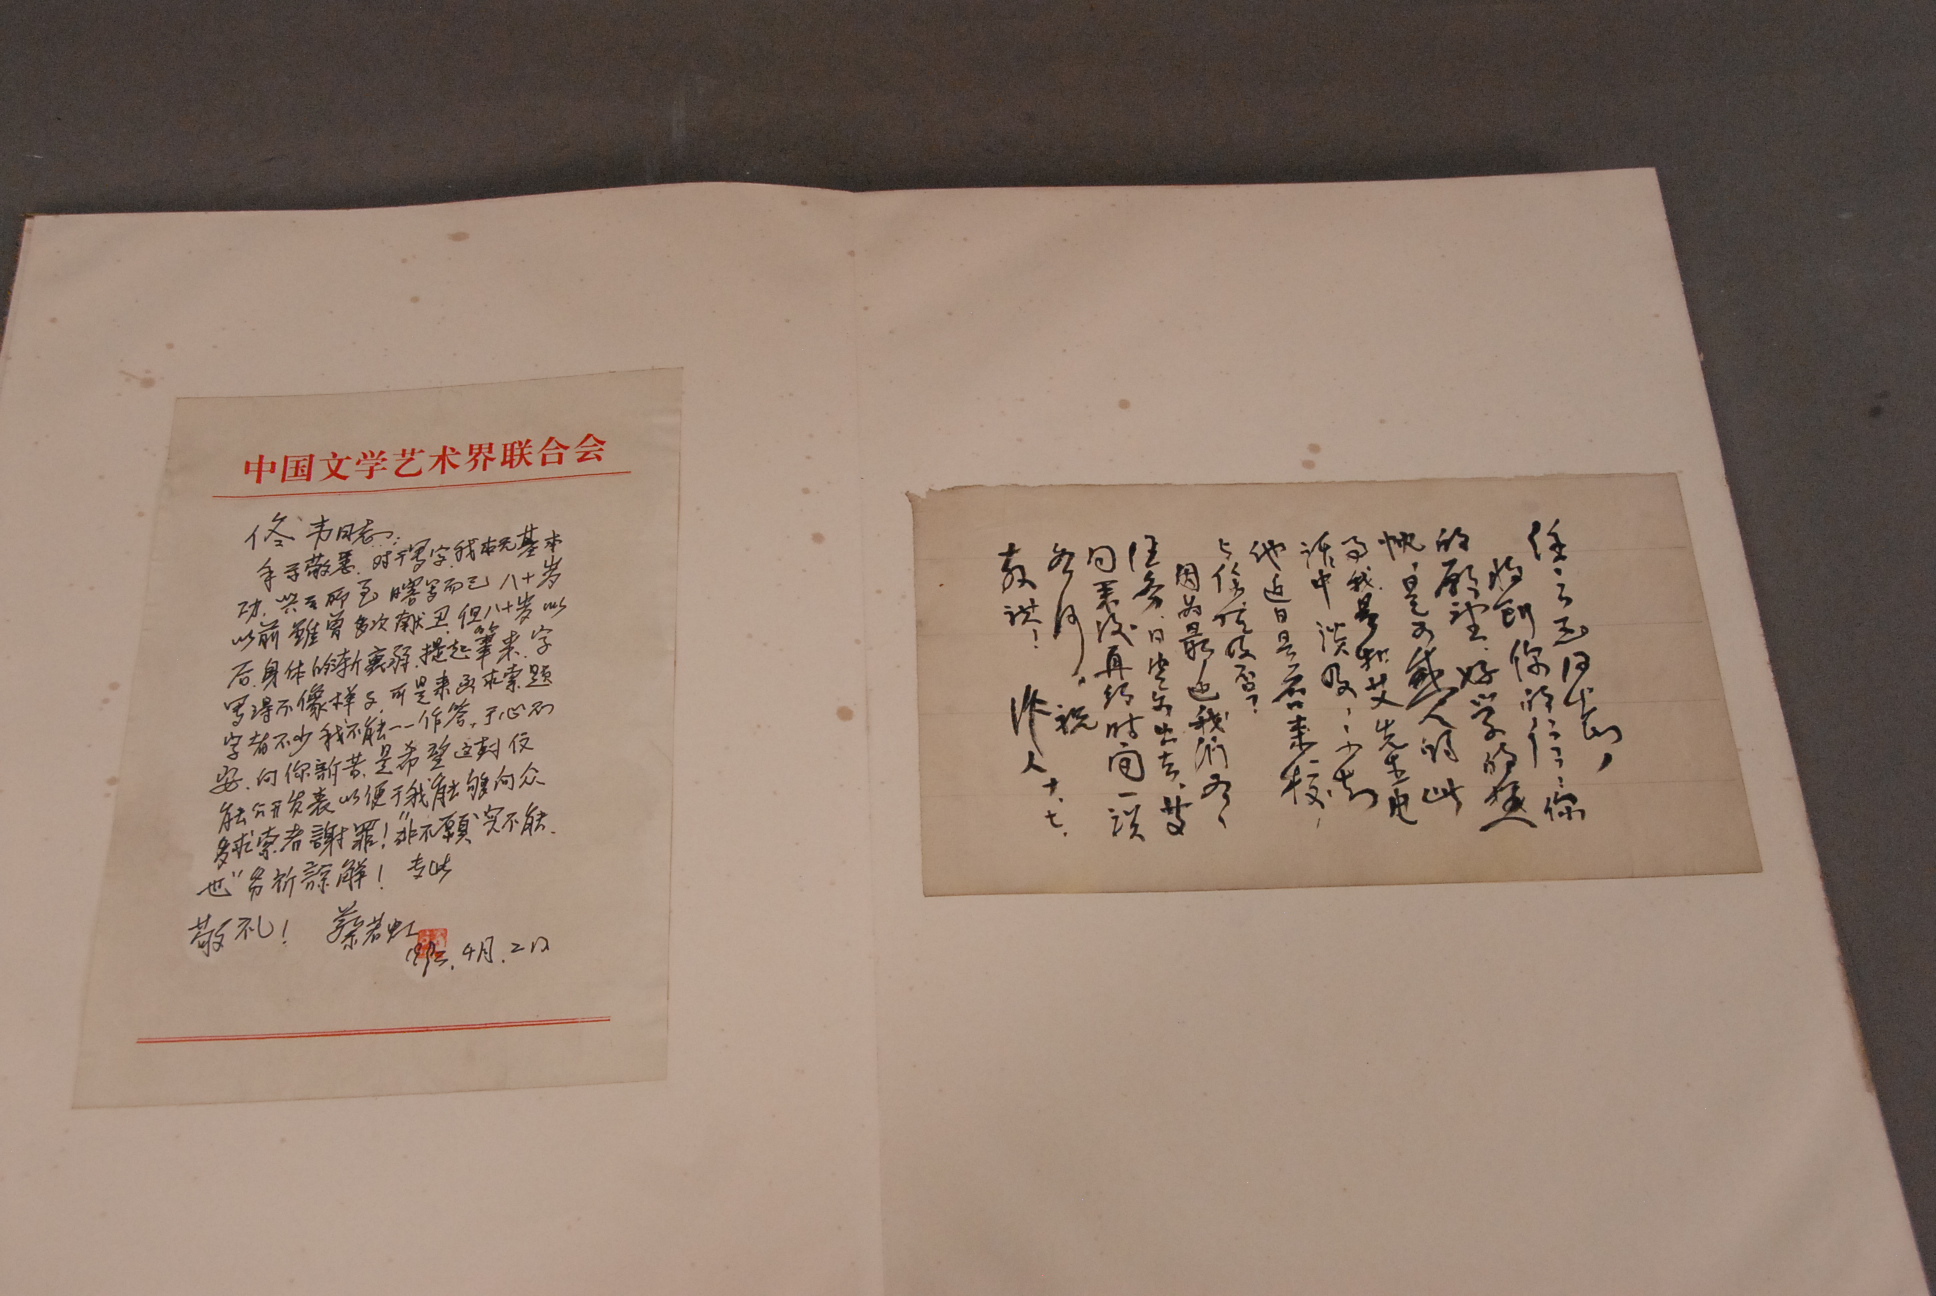 中国文学艺术界联合会
佟韦同志：
手示敬悉。对于写字，我本无基本
功，兴至而已，瞎写而已，八十岁
以前虽曾多次献丑，但八十岁以
后，身体的渐衰弱，提起筆来，字
写得不像样子，可是来函求索题
字者不少，我不能一一作答，于心不
安，向你诉苦，是希望这封信
能公开发表以便于我能够向众
多求索者謝罪！“非不願实不能
也”务祈諒解！专此
敬礼！ 蔡若虹
1992.4月.2日
收到你的信，你
的願望，好学的熱
忱，是可感人的，此
事我曾和艾先生电
話中談及，不知
他近日是否来校，
与你谈及否？
因为最近我们有
任务，日内外出去，艾
回来后再約时間一談
如何，祝
教祺！ 作人 十.七.